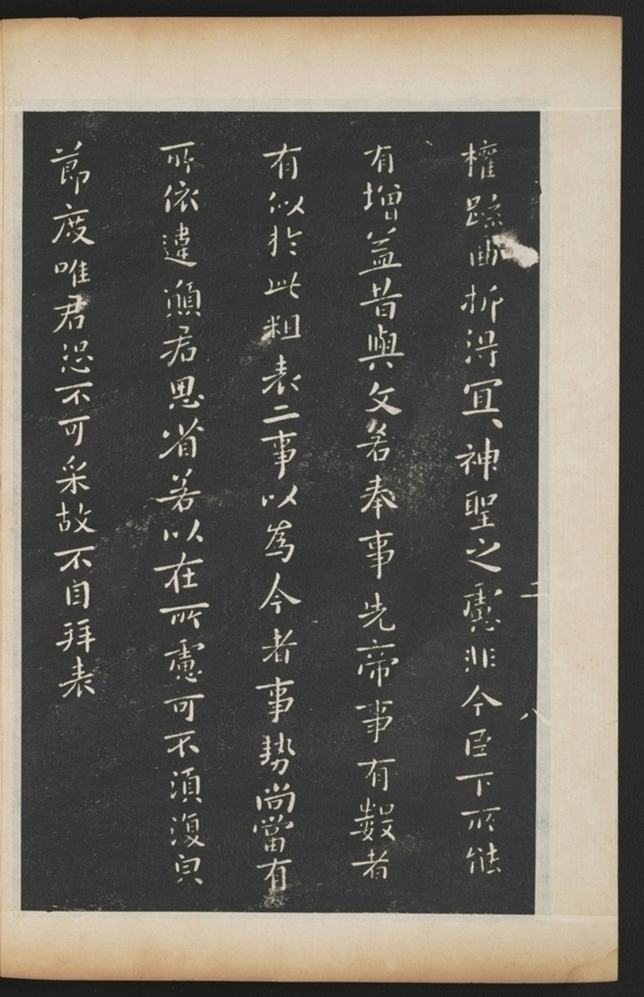 權疏曲折得冝神聖之慮非今臣下所能
有增益昔與文若奉事先帝事有數者
有似於此粗表二事以為今者事勢尚當有
所依違願君思省若以在所慮可不須復皃
節度唯君恐不可采故不自拜表
二
八